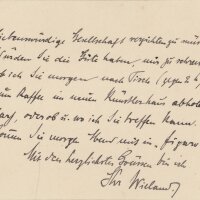 liebenswürdige Gesellschaft verzichten zu müs
Würden Sie die Güte haben, mir zu schrei
ob ich Sie morgen nach Tisch (gegen 2 h)
zum Kaffee im neuen Künstlerhaus abhole
darf, oder ob u. wo ich Sie treffen kann.
Sie morgen Abend mit in „Figaro
Mit den herzlichsten Grüssen bin ich
Ihr Wieland